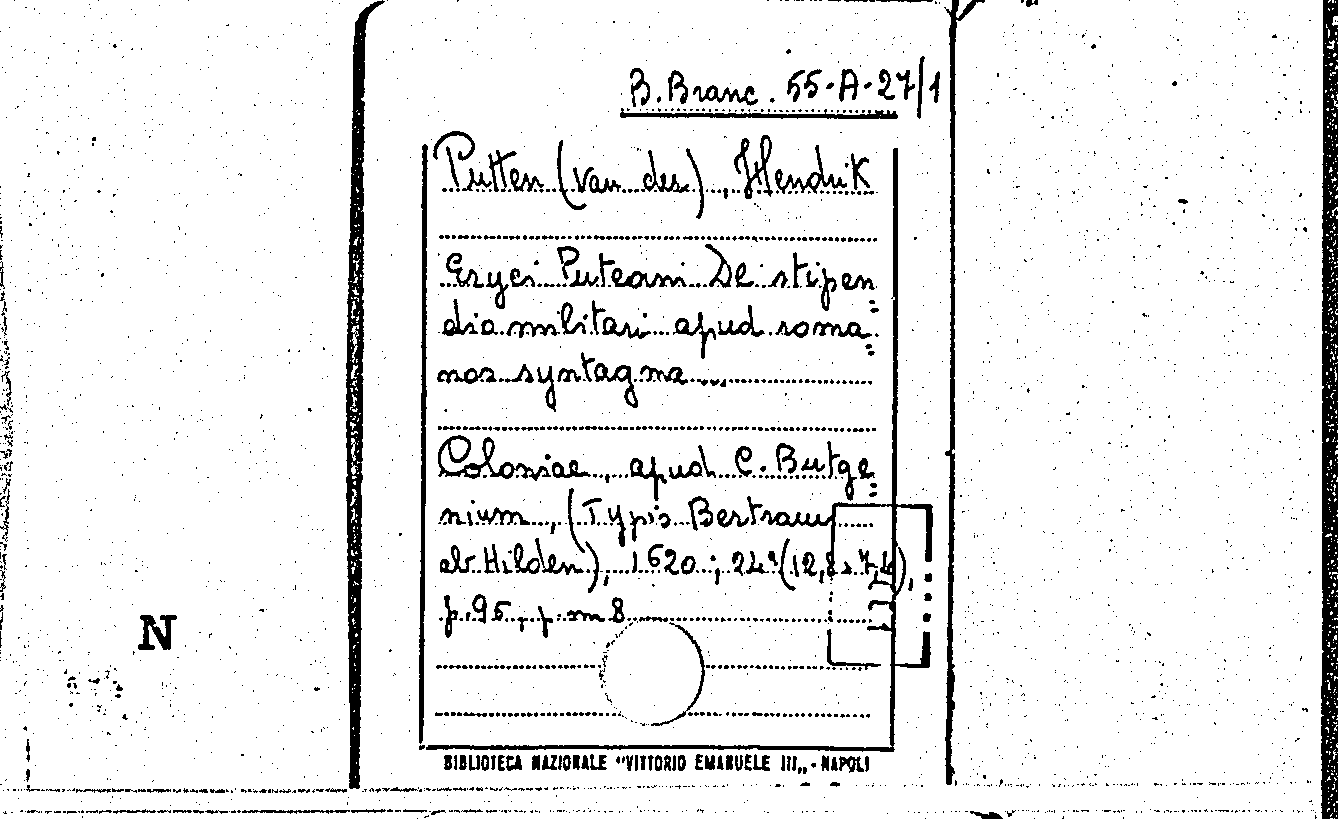 B. Branc. 55-A-27/1
Putten (van der), Hendrik
Eryci Puteani De stipen
dio militari apud roma
nos syntagma...
Coloniae, apud C. Butge
nium, (Typis Bertrami
ab Hilden), 1620; 24° (12,8x7,4),
p. 95, p. m 8
N
BIBLIOTECA NAZIONALE "VITTORIO EMANUELE III„ - NAPOLI